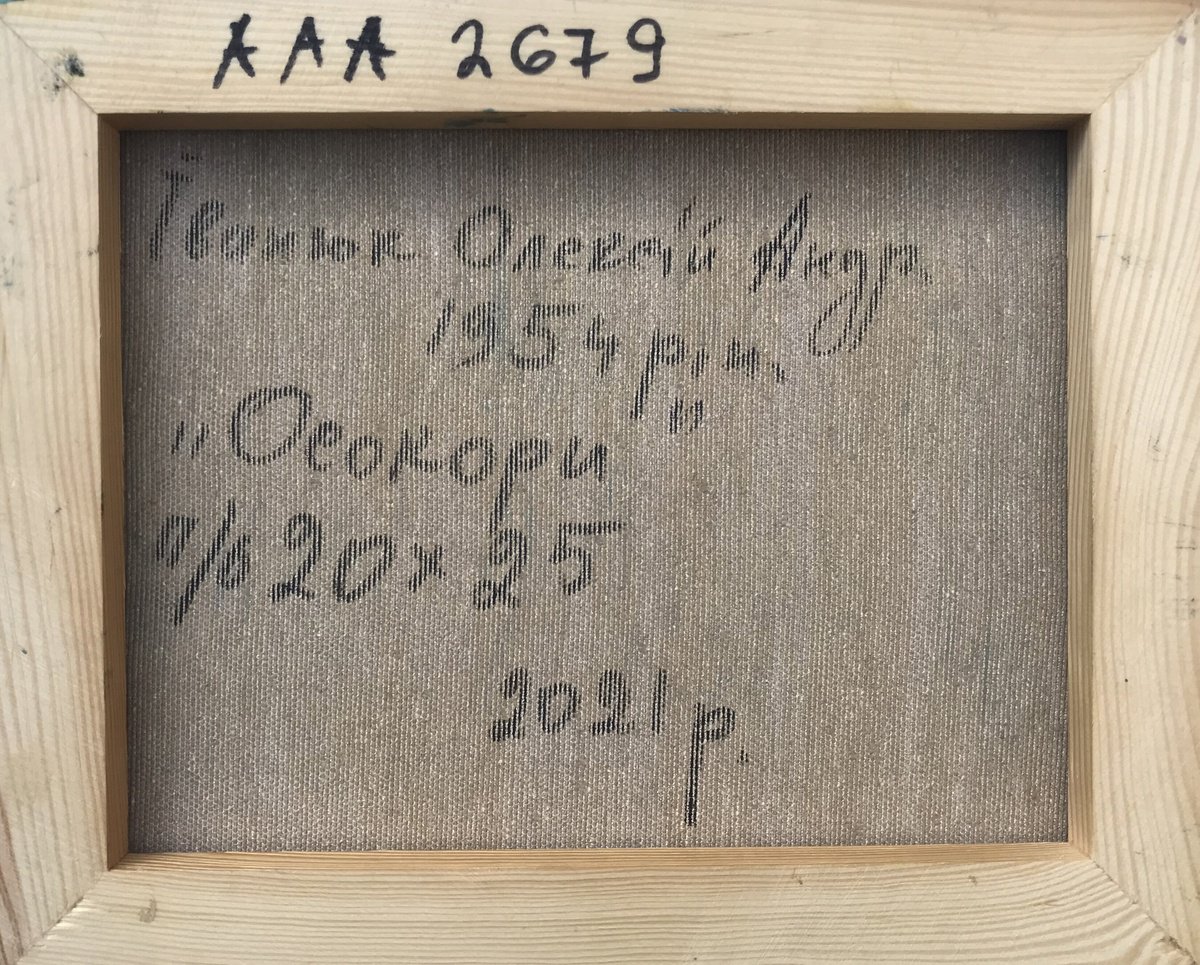 ААА 2679
Іванюк Олексій Андр.
1954 р.н.
"Осокори"
п/о 20х25
2021 р.